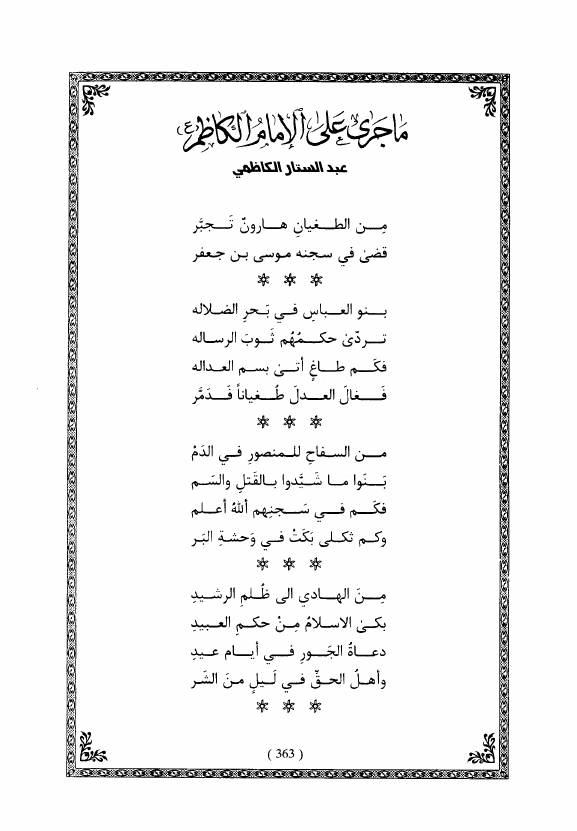 ما جرى على الإمام الكاظم (ع)
عبد الستار الكاظمي
مِـن الطـغيانِ هـارونٌ تَـجبَّر
قضىٰ في سجنه موسى بن جعفر
بـنو العباسِ فـي بَـحرِ الضلاله
تـردّىٰ حكـمُهُم ثَـوبَ الرساله
فكَـم طـاغٍ أتـىٰ بسـم العـداله
فَـغالَ العـدلَ طُـغياناً فَـدَمَّر
مـن السـفاحِ للـمنصورِ فـي الدَمْ
بَـنَوا مـا شَـيَّدوا بـالقَتلِ والسَـم
فكَـم فـي سَـجنِهم اللهُ أعـلم
وكـم ثكـلى بَكَتْ فـي وَحشةِ البَـر
مِـنَ الهـادي الى ظُـلمِ الرشـيدِ
بكـىٰ الاسلامُ مِـنْ حكـمِ العـبيدِ
دعـاةُ الجَـورِ فـي أيـام عـيدِ
وأهـلُ الحـقِّ في لَـيلٍ منَ الشَـر
( 363 )